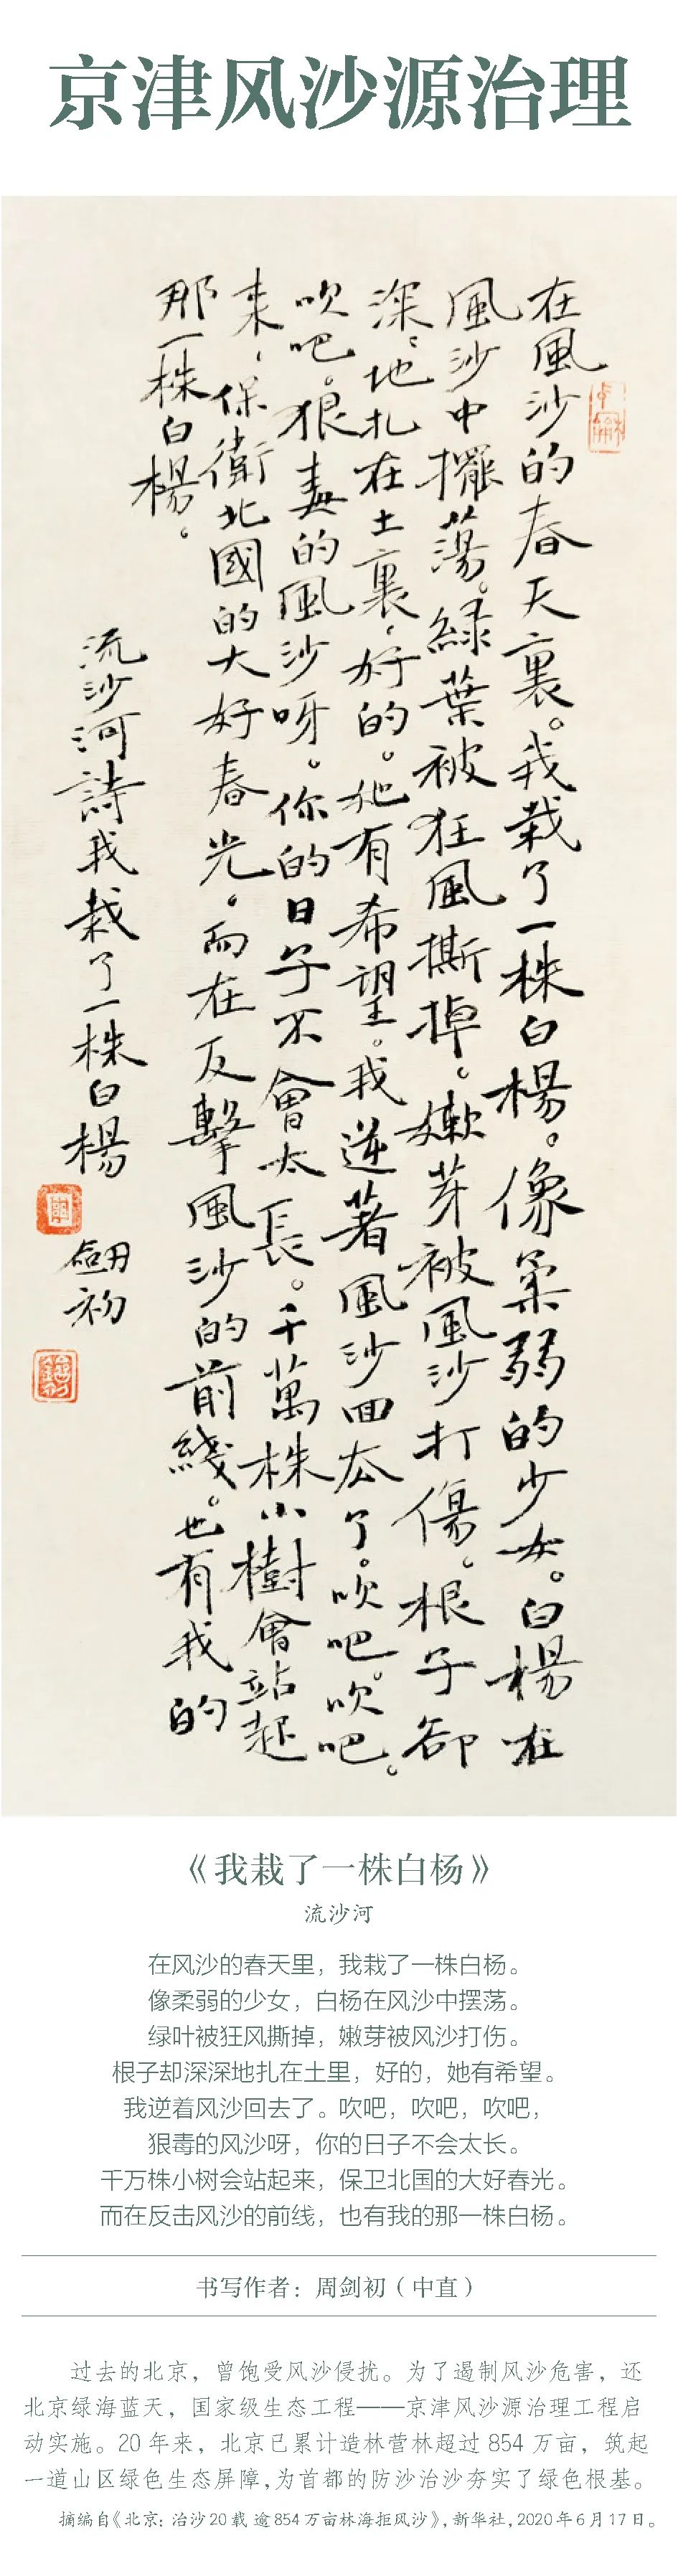 京津风沙源治理
在風沙的春天裏。我栽了一株白楊。像柔弱的少女。白楊在
風沙中擺蕩。綠葉被狂風撕掉。嫩芽被風沙打傷。根子卻
深。地扎在土裏，好的。她有希望。我逆著風沙回去了。吹吧。吹吧。
吹吧。狠毒的風沙呀。你的日子不會太長。千萬株小樹會站起
來，保衛北國的大好春光。而在反擊風沙的前綫。也有我的
那一株白楊。
流沙河詩我栽了一株白楊
劒初
《我栽了一株白杨》
流沙河
在风沙的春天里，我栽了一株白杨。
像柔弱的少女，白杨在风沙中摆荡。
绿叶被狂风撕掉，嫩芽被风沙打伤。
根子却深深地扎在土里，好的，她有希望。
我逆着风沙回去了。吹吧，吹吧，吹吧，
狠毒的风沙呀，你的日子不会太长。
千万株小树会站起来，保卫北国的大好春光。
而在反击风沙的前线，也有我的那一株白杨。
书写作者：周剑初（中直）
过去的北京，曾饱受风沙侵扰。为了遏制风沙危害，还
北京绿海蓝天，国家级生态工程——京津风沙源治理工程启
动实施。20 年来，北京已累计造林营林超过 854 万亩，筑起
一道山区绿色生态屏障,为首都的防沙治沙夯实了绿色根基。
摘编自《北京：治沙20载 逾854万亩林海拒风沙》，新华社，2020年6月17日。